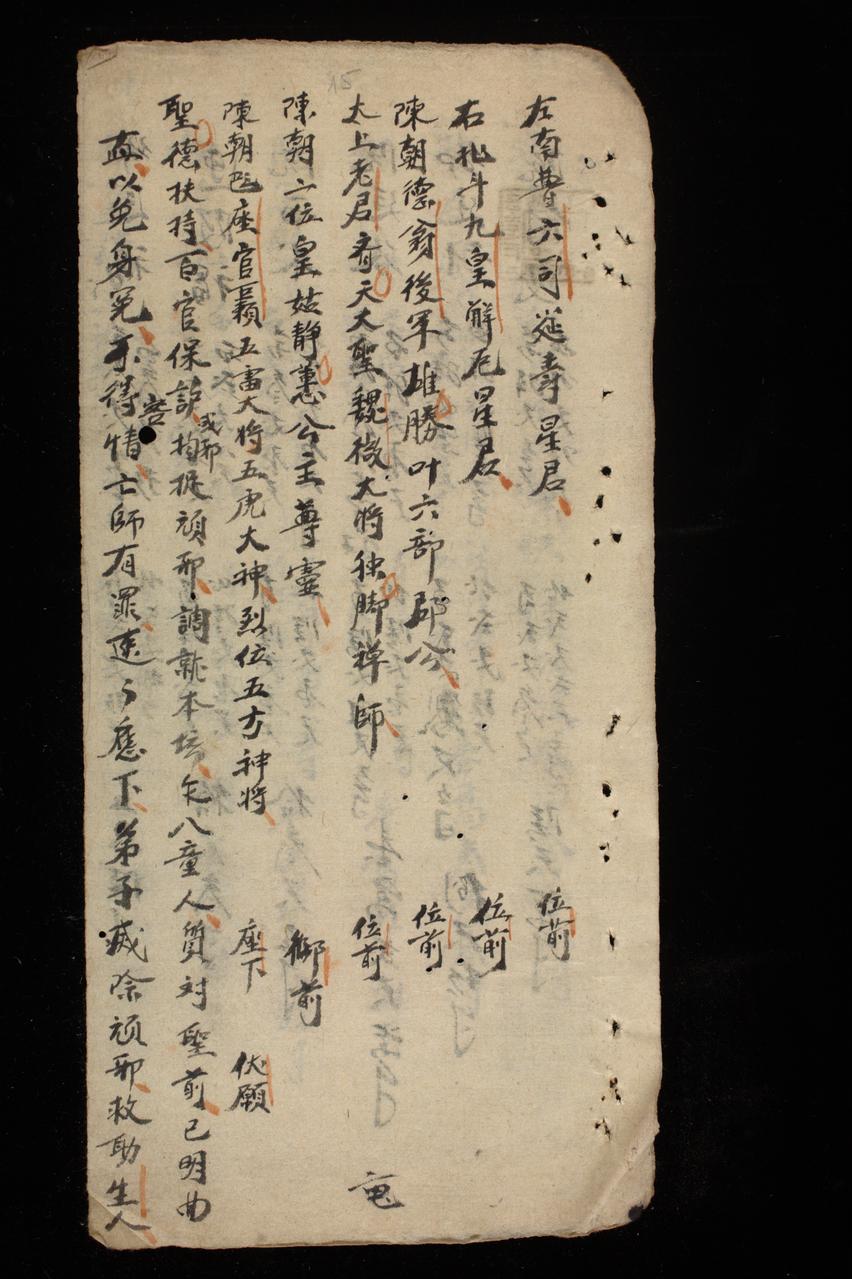 左南曹六司延壽星君 位前
右北斗九皇解厄星君 位前
陳朝德翁後軍雄勝叶六部郡公 位前
太上老君齊天大聖魏徵大將独脚禅師 位前
陳朝二位皇姑静惠公主尊靈 御前
陳朝 座官 五雷大将五虎大神烈位五方神将 座下 伏願
聖德扶持百官保護 或邪 拘捉頑邪調就本壇乞八童人質对聖前已明曲
直以免身冤 不得 容 情亡師有罪速々應下弟子滅除頑邪救助生人